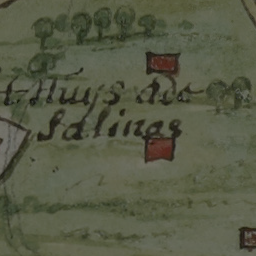 t Huys ado
Salinas